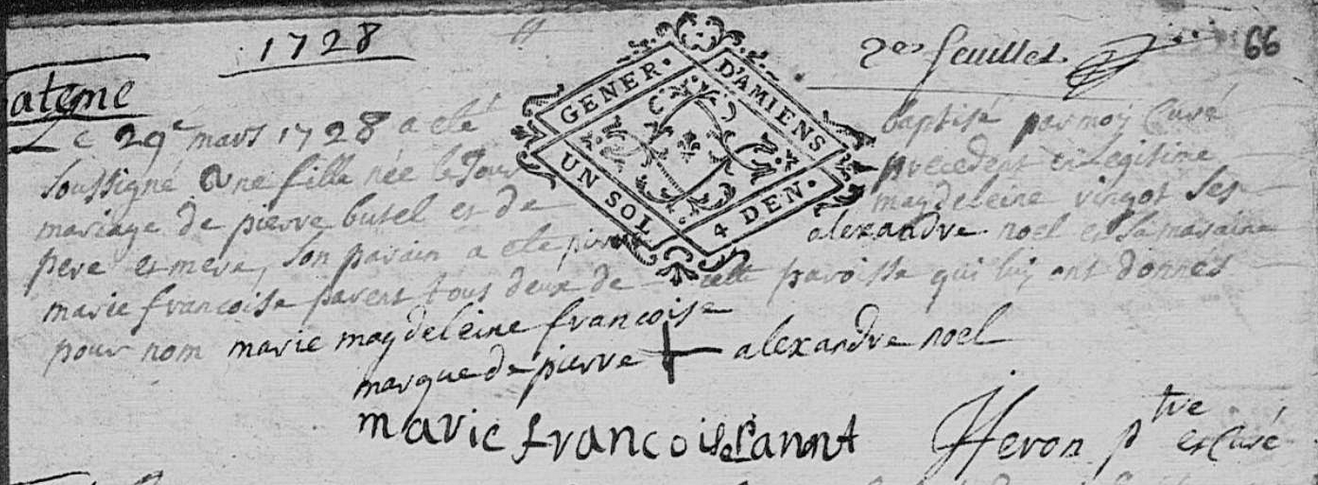 1728
2e feuillet.
66
GENER. D'AMIENS
UN SOL 4 DEN.
ateme
Le 29e mars 1728 a eté baptisé par moy Curé
soussigné une fille née le Jour precedent en Legitime
mariage de pierre butel et de magdeleine vingot ses
pere et mere, son parain a eté pierre alexandre noel et sa maraine
marie francoise parent tous deux de cette paroisse qui luy ont donnés
pour nom marie magdeleine francoise
marque de pierre + alexandre noel
marie francoise
Heron ptre et Curé